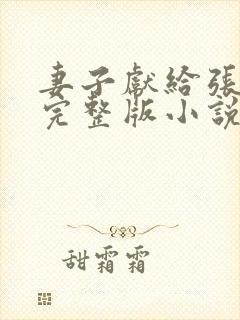 妻子獻給張
完整版小說
甜霜霜